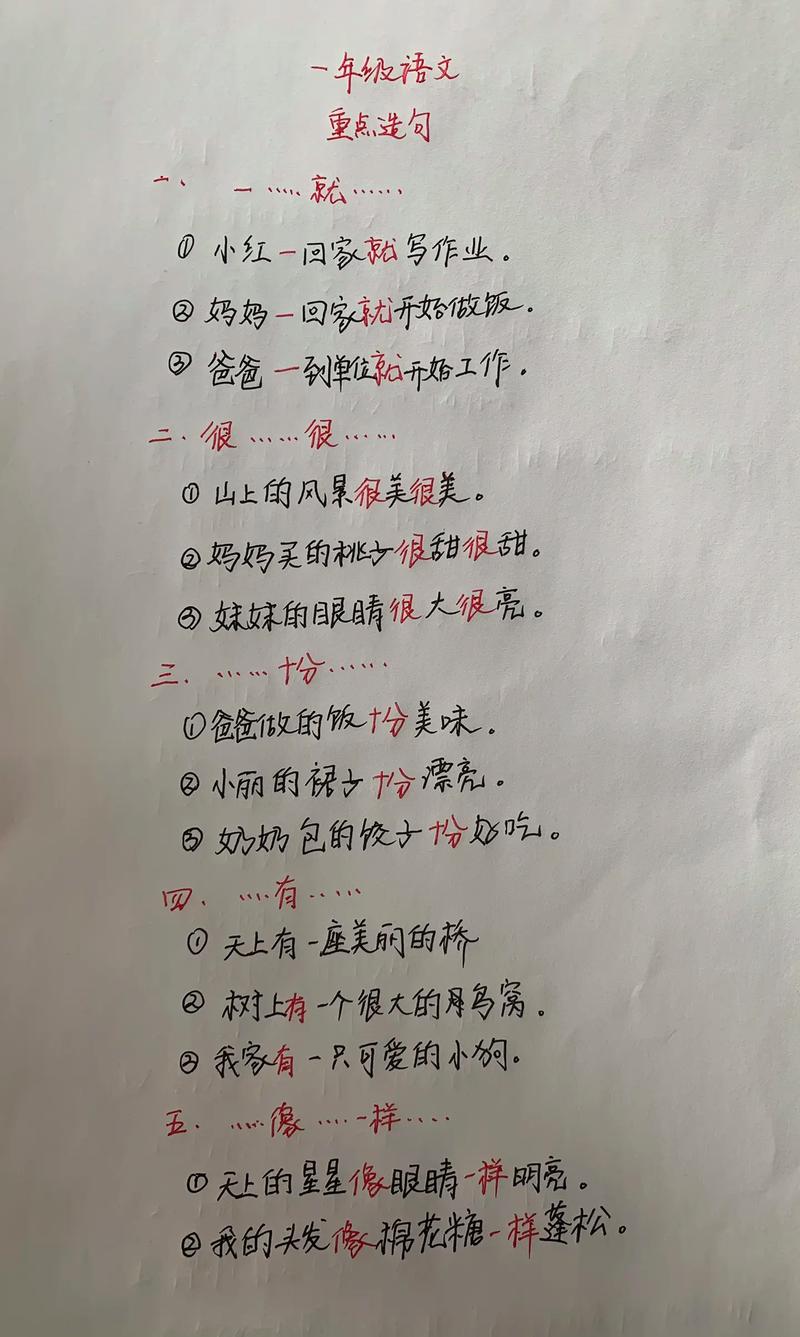 一年级语文
重点造句
一、 一……就……
① 小红一回家就写作业。
② 妈妈一回家就开始做饭。
③ 爸爸一到单位就开始工作。
二.很……很……
① 山上的风景很美很美。
② 妈妈买的桃子很甜很甜。
③ 妹妹的眼睛很大很亮。
三.……十分……
① 爸爸做的饭十分美味。
② 小丽的裙子十分漂亮。
③ 奶奶包的饺子十分好吃。
四.……有……
① 天上有一座美丽的桥
② 树上有一个很大的鸟窝。
③ 我家有一只可爱的小狗。
五.……像……一样……
① 天上的星星像眼睛一样明亮。
② 我的头发像棉花糖一样蓬松。